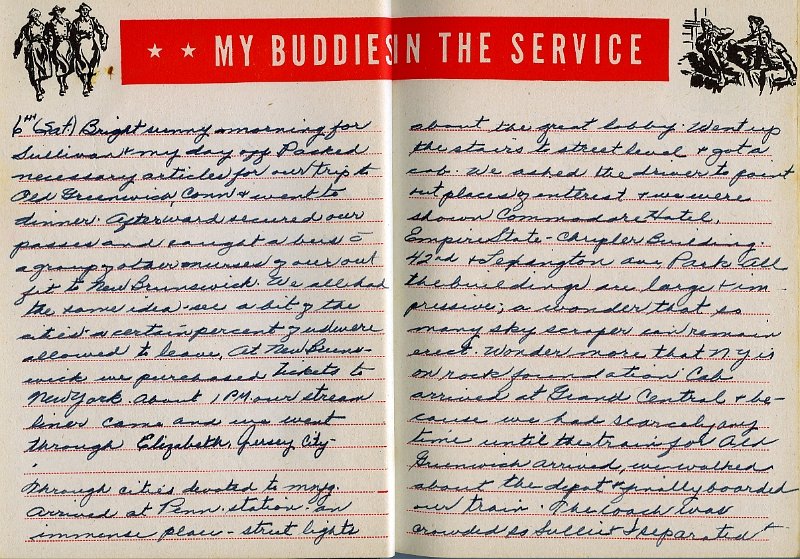 ★ ★ MY BUDDIES IN THE SERVICE
6th (Sat.) Bright sunny morning for
Sullivan & my day off. Packed
necessary articles for our trip to
Old Greenwich, Conn & went to
dinner. Afterward secured our
passes and caught a bus c̄
a group of other nurses of our out
fit to New Brunswick. We all had
the same idea - see a bit of the
cities - a certain percent of us were
allowed to leave. At New Bruns-
wick we purchased tickets to
New York. About 1 PM our stream
liner came and we went
through Elizabeth, Jersey City -
Through cities devoted to mfg.
Arrived at Penn. station - an
immense place - street lights
about the great lobby. Went up
the stairs to street level & got a
cab. We asked the driver to point
out places of interest & we were
shown Commodore Hotel,
Empire State - Chrysler Building.
42nd & Lexington ave, Park. All
the buildings are large & im-
pressive; a wonder that so
many sky scraper can remain
erect. Wonder more that NY is
on rock foundation. Cab
arrived at Grand Central & be-
cause we had scarcely any
time until the train for Old
Greenwich arrived, we walked
about the depot & finally boarded
our train. The coach was
crowded so Sullie & I separated &